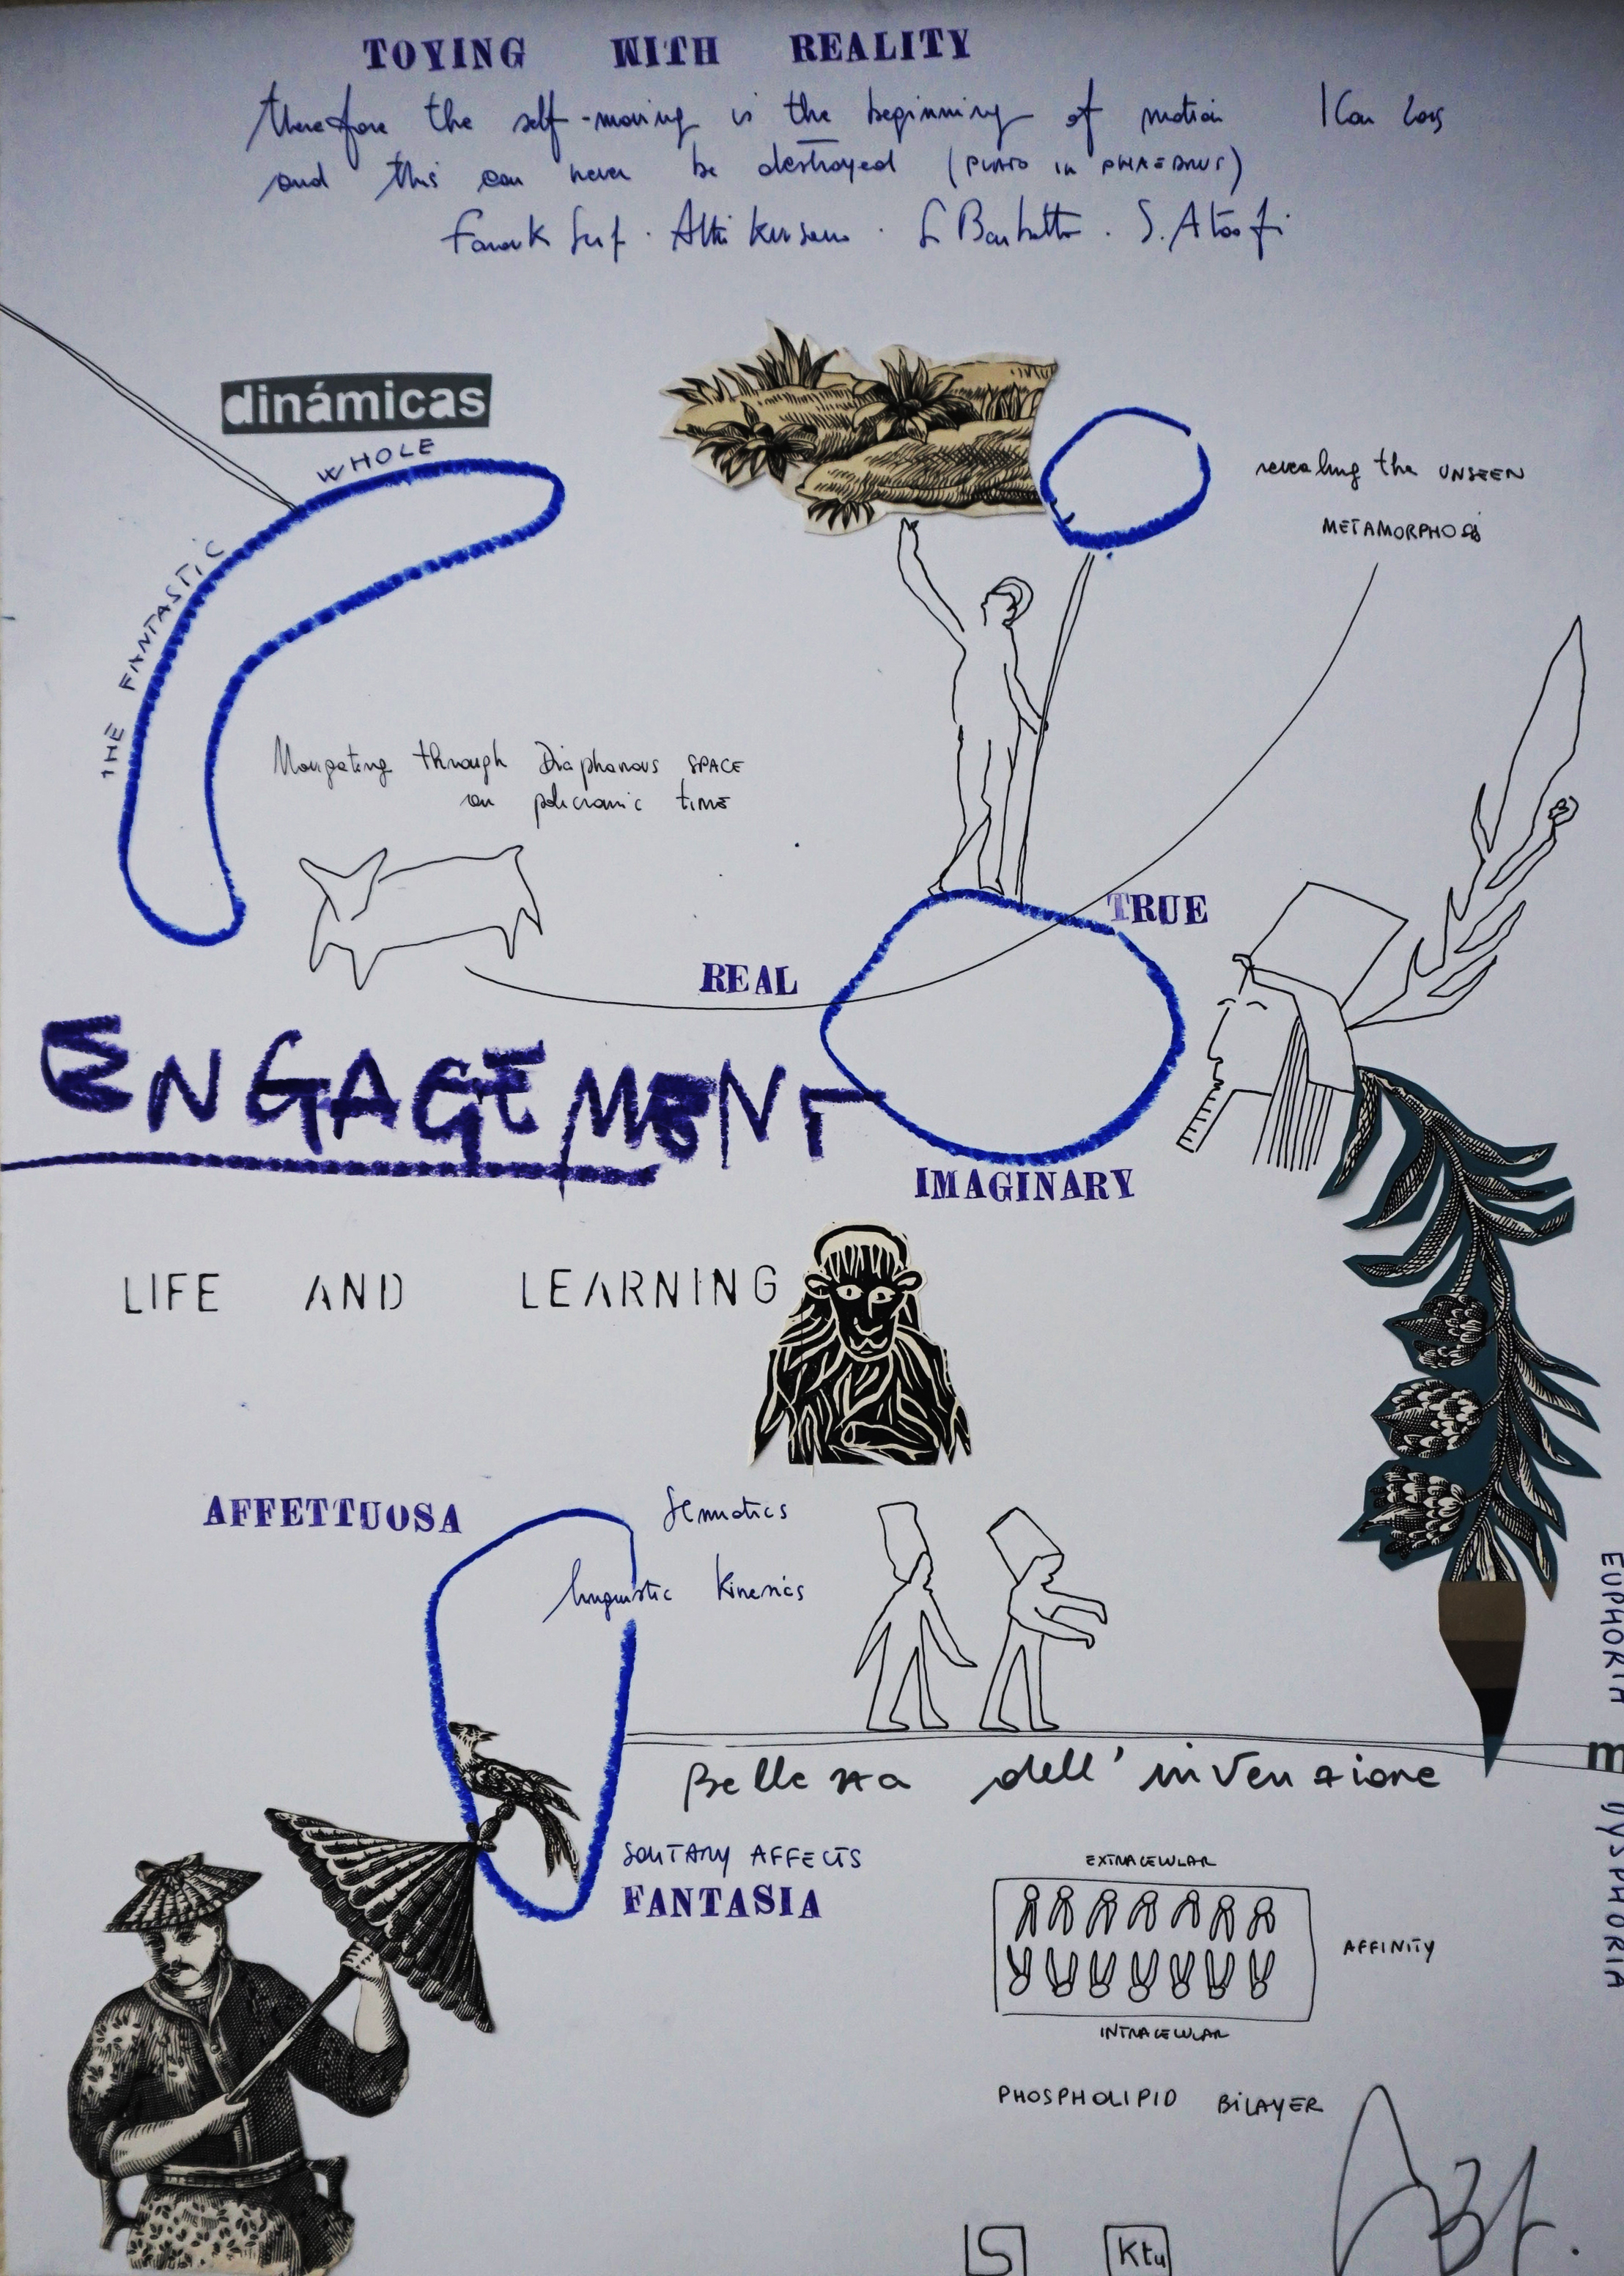 TOYING WITH REALITY
therefore the self-moving is the beginning of motion
and this can never be destroyed (PLATO in PHAEDRUS)
dinámicas
WHOLE
THE FANTASTIC
revealing the UNSEEN
METAMORPHOSIS
Navigating through Diaphanous SPACE
on policromic time
TRUE
REAL
ENGAGEMENT
IMAGINARY
LIFE AND LEARNING
AFFETTUOSA
Semiotics
linguistic Kinesics
EUPHORIA
m
DYSPHORIA
Bellezza dell'invenzione
SOLITARY AFFECTS
FANTASIA
EXTRACELULAR
AFFINITY
INTRACELULAR
PHOSPHOLIPID BILAYER
Ktu